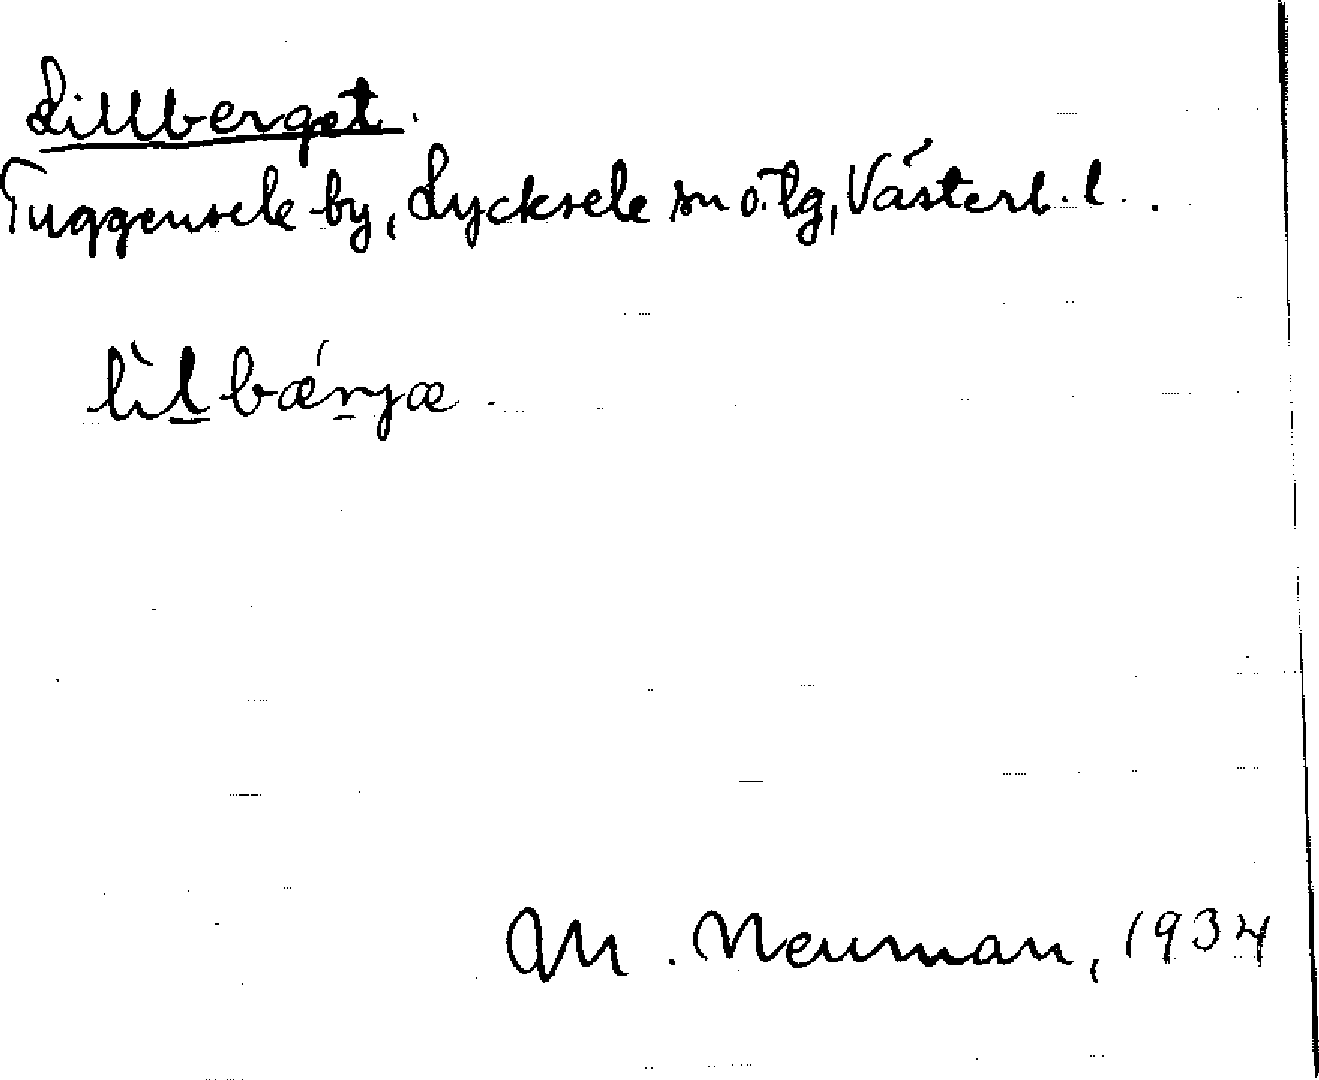 Lillberget.
Tuggensele by, Lycksele sn o. tg, Västerb. l.
lìl̲bǽr̲jæ.
M. Neuman, 1934